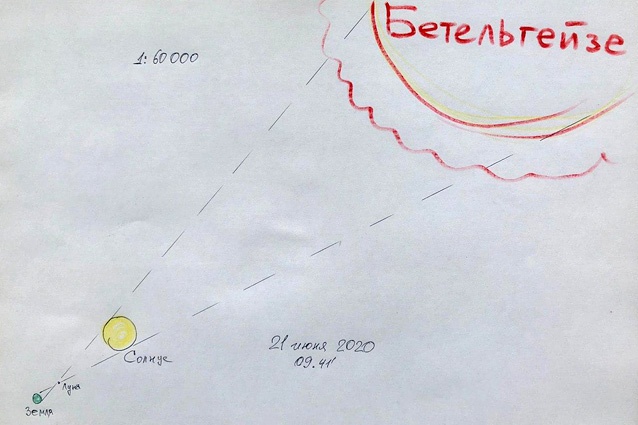 Бетельгейзе
1:60 000
Солнце
21 июня 2020
09.41
Луна
Земля